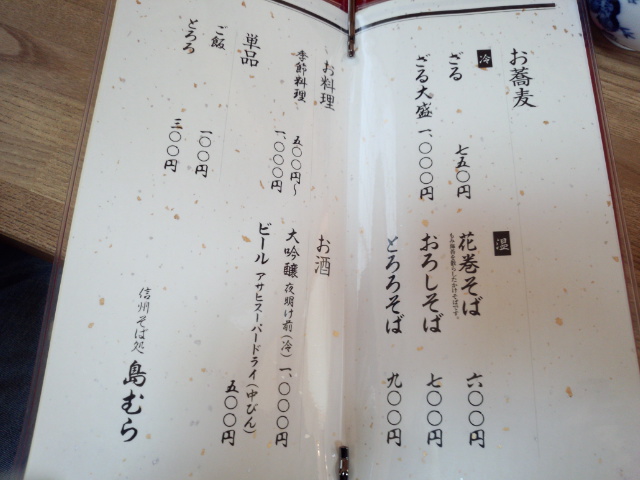 お蕎麦
冷
ざる 七五〇円
ざる大盛 一、〇〇〇円
温
花巻そば 六〇〇円
もみ海苔を散らしたかけそばです。
おろしそば 七〇〇円
とろろそば 九〇〇円
お料理
季節料理 五〇〇円～
一、〇〇〇円
単品
ご飯 一〇〇円
とろろ 三〇〇円
お酒
大吟醸 夜明け前(冷) 一、〇〇〇円
ビール アサヒスーパードライ(中びん) 五〇〇円
信州そば処 島むら